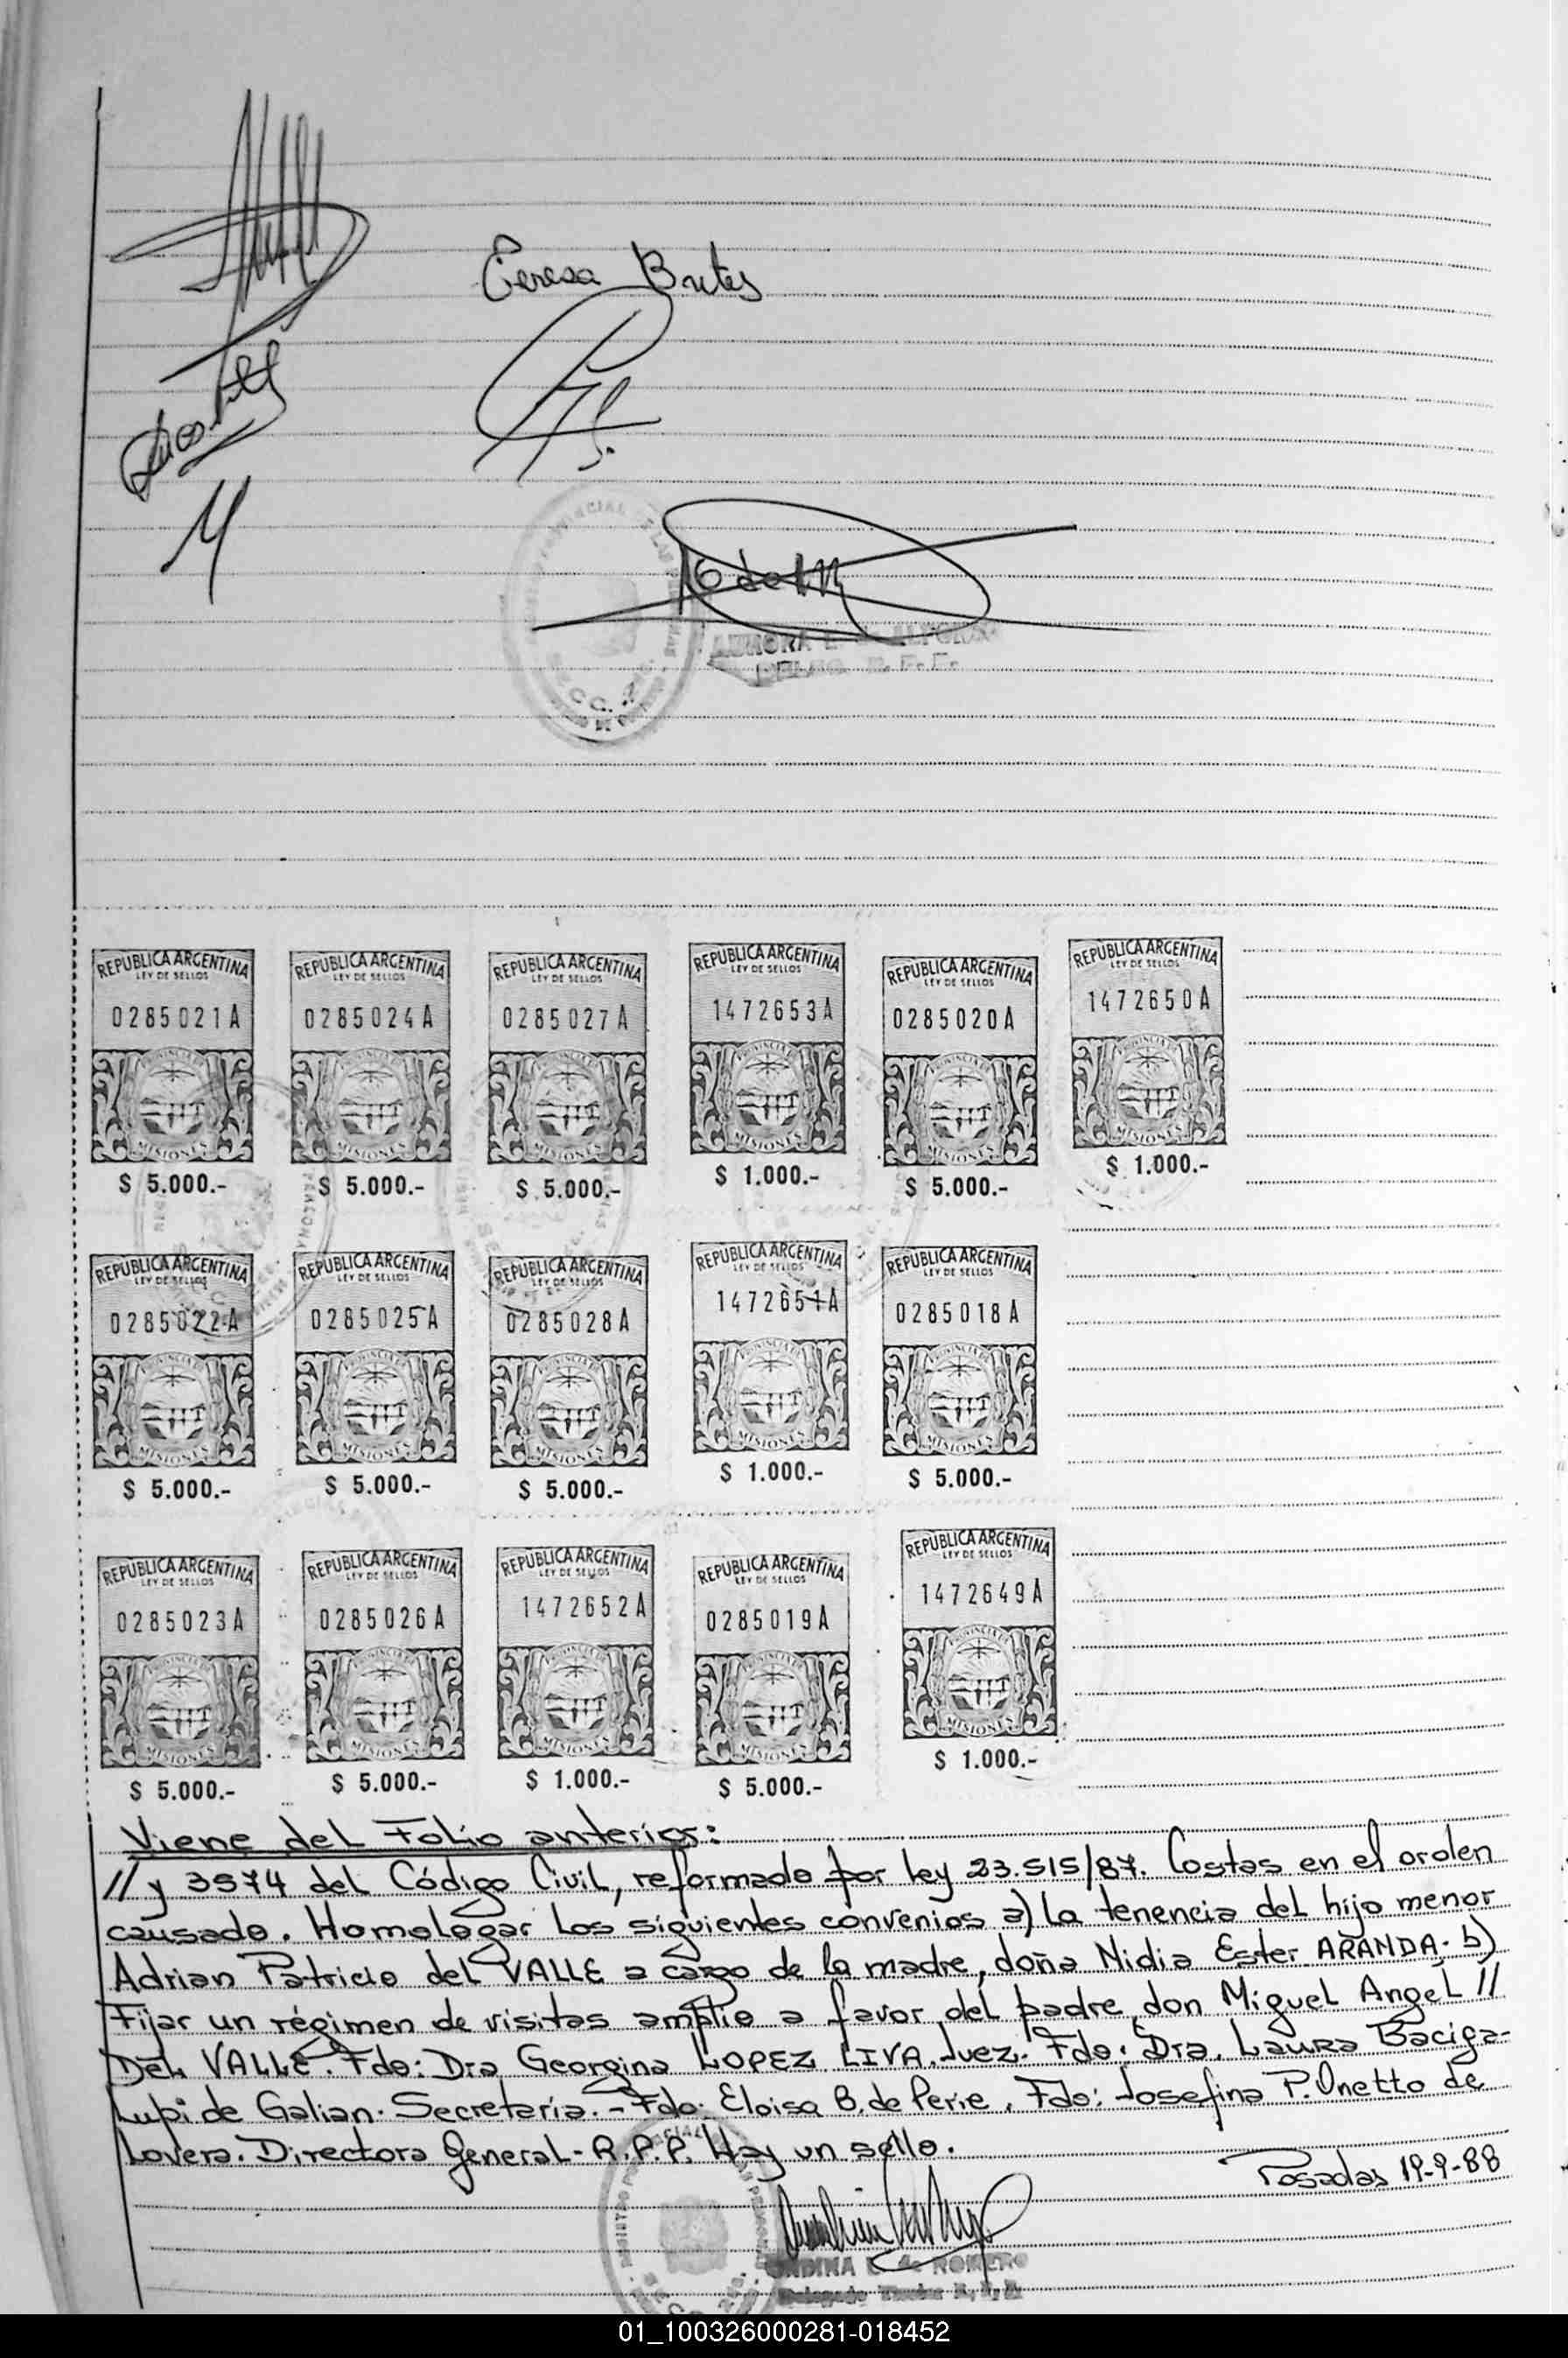 Teresa Brites
REPUBLICA ARGENTINA
LEY DE SELLOS
0285021A
MISIONES
$ 5.000.-
REPUBLICA ARGENTINA
LEY DE SELLOS
0285024A
MISIONES
$ 5.000.-
REPUBLICA ARGENTINA
LEY DE SELLOS
0285027A
MISIONES
$ 5.000.-
REPUBLICA ARGENTINA
LEY DE SELLOS
1472653A
MISIONES
$ 1.000.-
REPUBLICA ARGENTINA
LEY DE SELLOS
0285020A
MISIONES
$ 5.000.-
REPUBLICA ARGENTINA
LEY DE SELLOS
1472650A
MISIONES
$ 1.000.-
REPUBLICA ARGENTINA
LEY DE SELLOS
0285022A
MISIONES
$ 5.000.-
REPUBLICA ARGENTINA
LEY DE SELLOS
0285025A
MISIONES
$ 5.000.-
REPUBLICA ARGENTINA
LEY DE SELLOS
0285028A
MISIONES
$ 5.000.-
REPUBLICA ARGENTINA
LEY DE SELLOS
1472651A
MISIONES
$ 1.000.-
REPUBLICA ARGENTINA
LEY DE SELLOS
0285018A
MISIONES
$ 5.000.-
REPUBLICA ARGENTINA
LEY DE SELLOS
0285023A
MISIONES
$ 5.000.-
REPUBLICA ARGENTINA
LEY DE SELLOS
0285026A
MISIONES
$ 5.000.-
REPUBLICA ARGENTINA
LEY DE SELLOS
1472652A
MISIONES
$ 1.000.-
REPUBLICA ARGENTINA
LEY DE SELLOS
0285019A
MISIONES
$ 5.000.-
REPUBLICA ARGENTINA
LEY DE SELLOS
1472649A
MISIONES
$ 1.000.-
Viene del Folio anterior:
// y 3574 del Código Civil, reformado por ley 23.515/87. Costas en el orden
causado. Homologar los siguientes convenios a) la tenencia del hijo menor
Adrian Patricio del VALLE a cargo de la madre, doña Nidia Ester ARANDA. b)
Fijar un régimen de visitas amplio a favor del padre don Miguel Angel //
Del VALLE. Fdo: Dra Georgina LOPEZ LIVA. Juez. Fdo: Dra. Laura Baciga-
Lupi de Galian. Secretaria. - Fdo: Eloisa B. de Perie. Fdo: Josefina P. Onetto de
Lovera. Directora General - R.P.P. Hay un sello.
Posadas 19-9-88
ROMERO
01_100326000281-018452